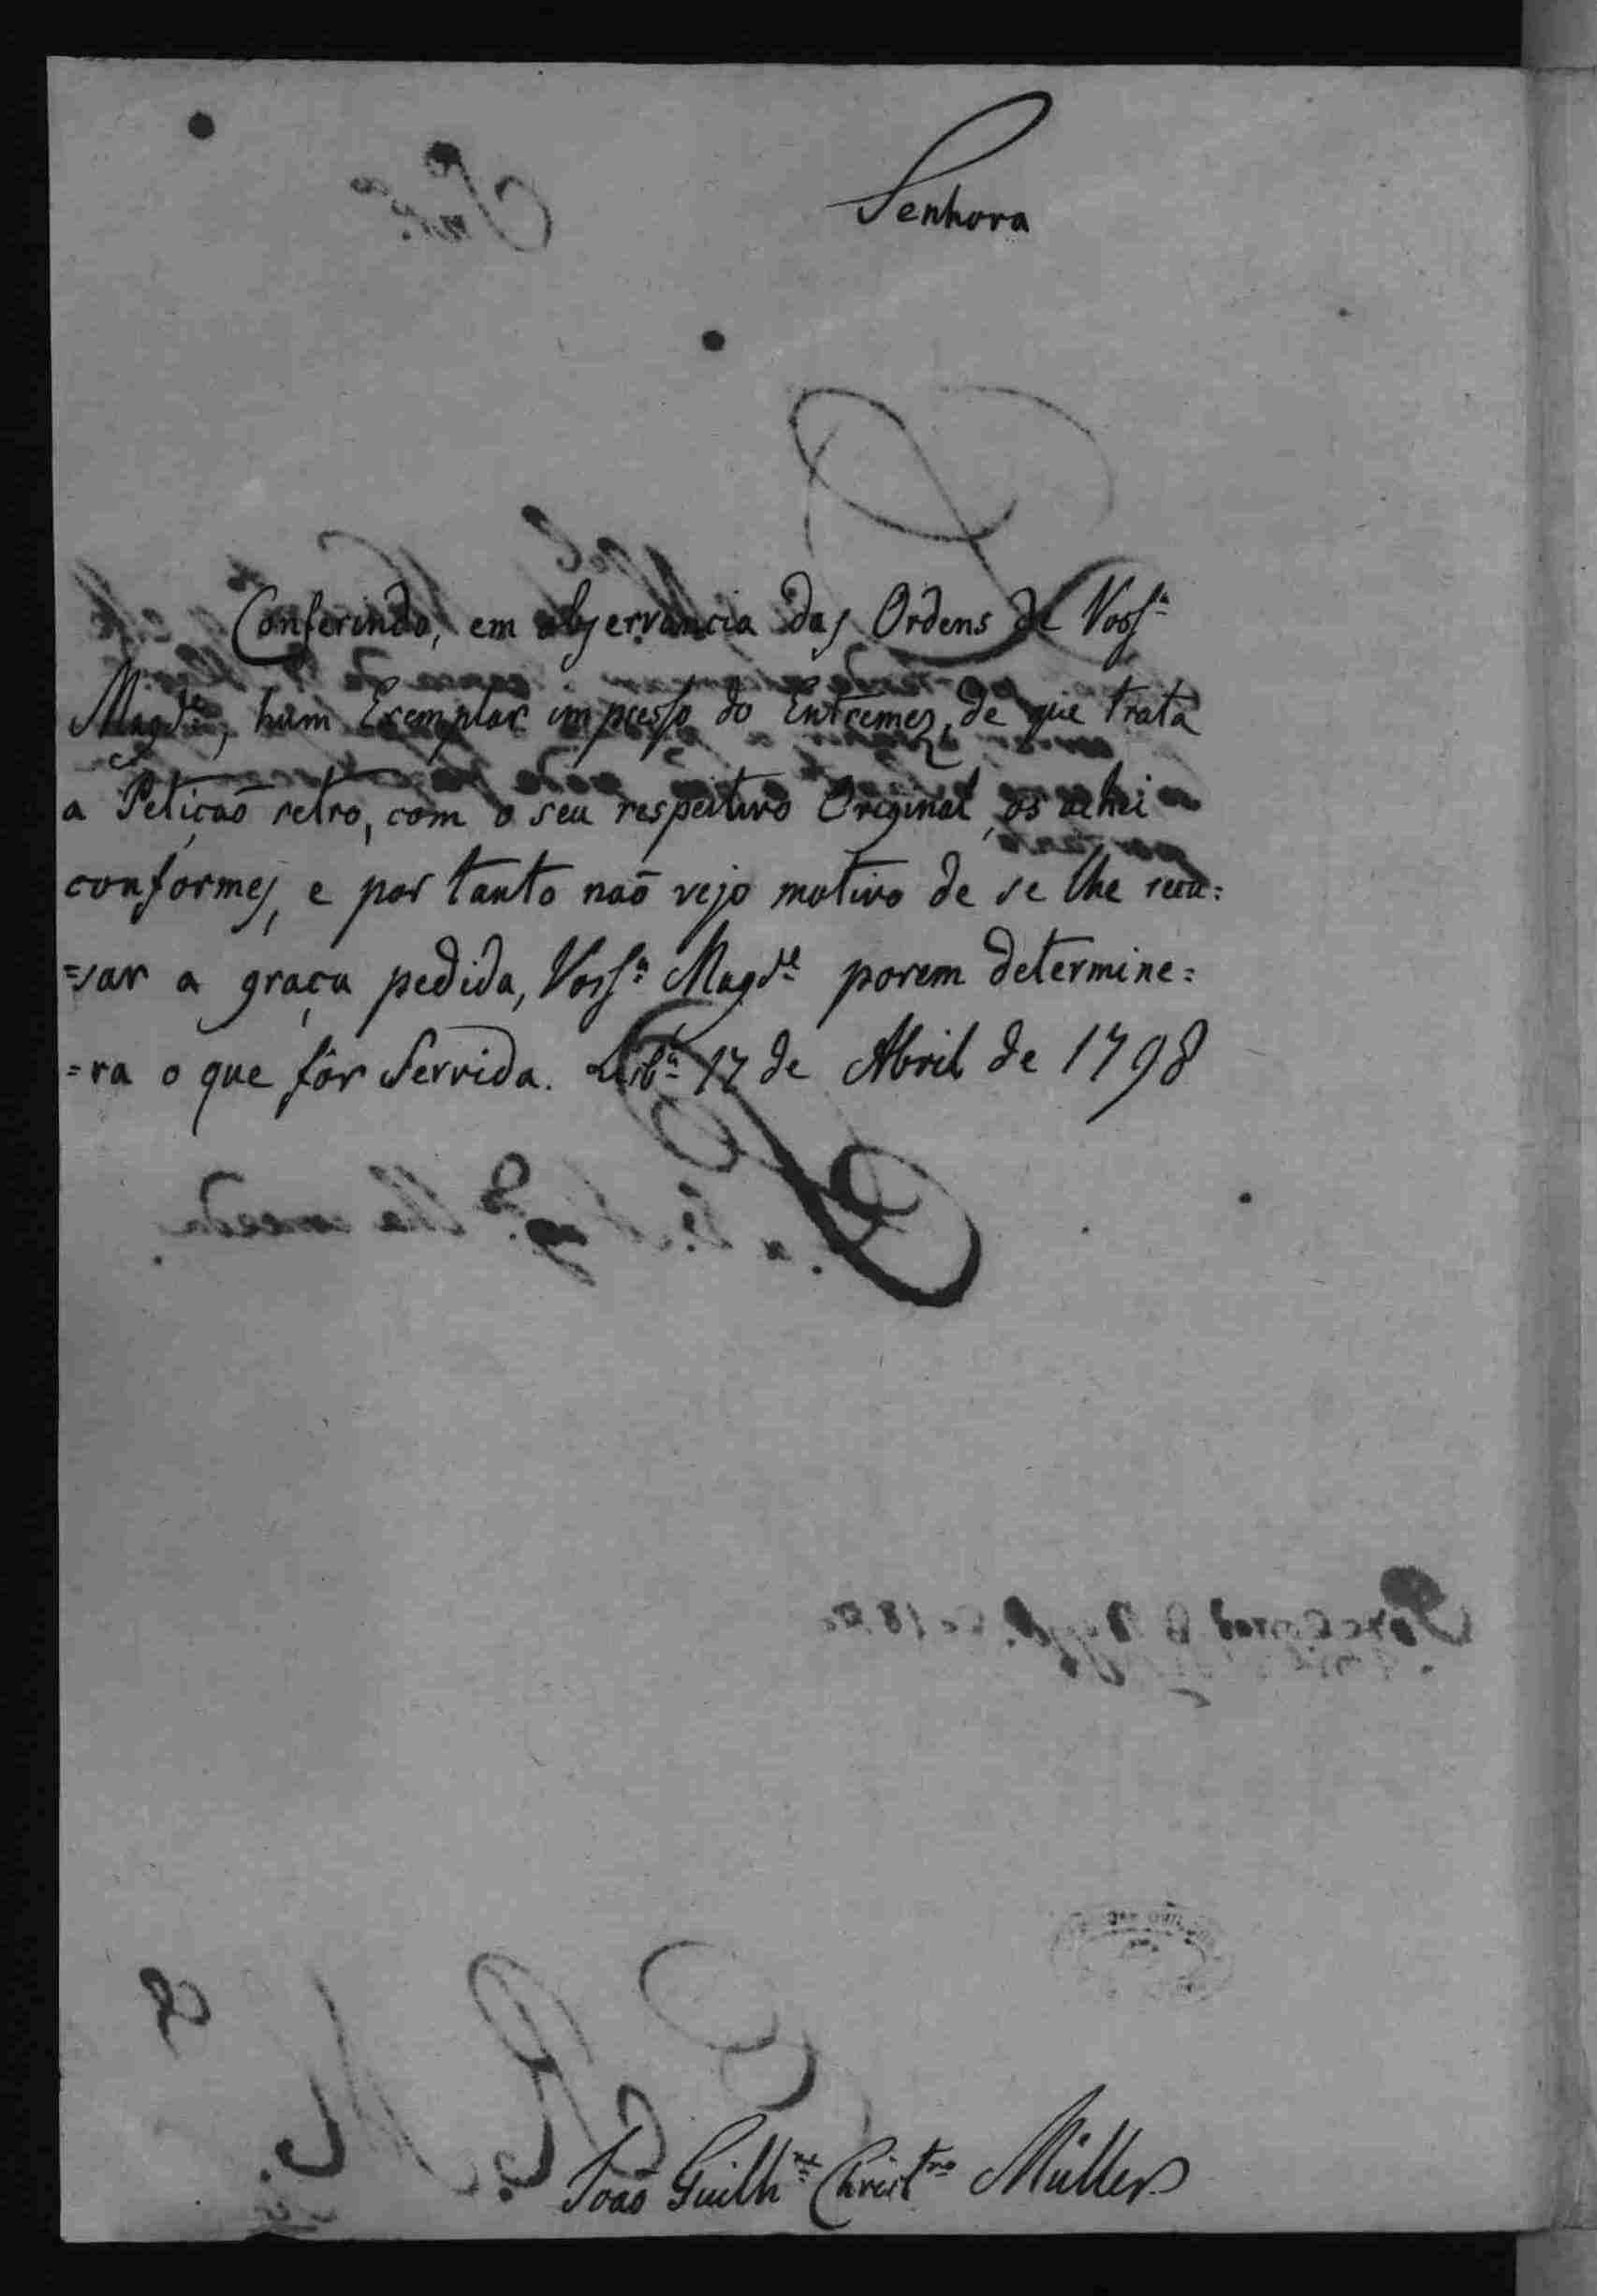 Senhora
Conferindo, em observancia das Ordens de Voss.ª
Magd.e, hum Exemplar impresso do Entremez, de que trata
a Petiçaõ retro, com o seu respectivo Original, os achei
conformes, e por tanto naõ vejo motivo de se lhe recu=
=sar a graça pedida, Voss.ª Magd.e porem determine=
=ra o que fôr Servida. Lisb.ª 17 de Abril de 1798
Joaõ Guilh.me Christ.no Müller